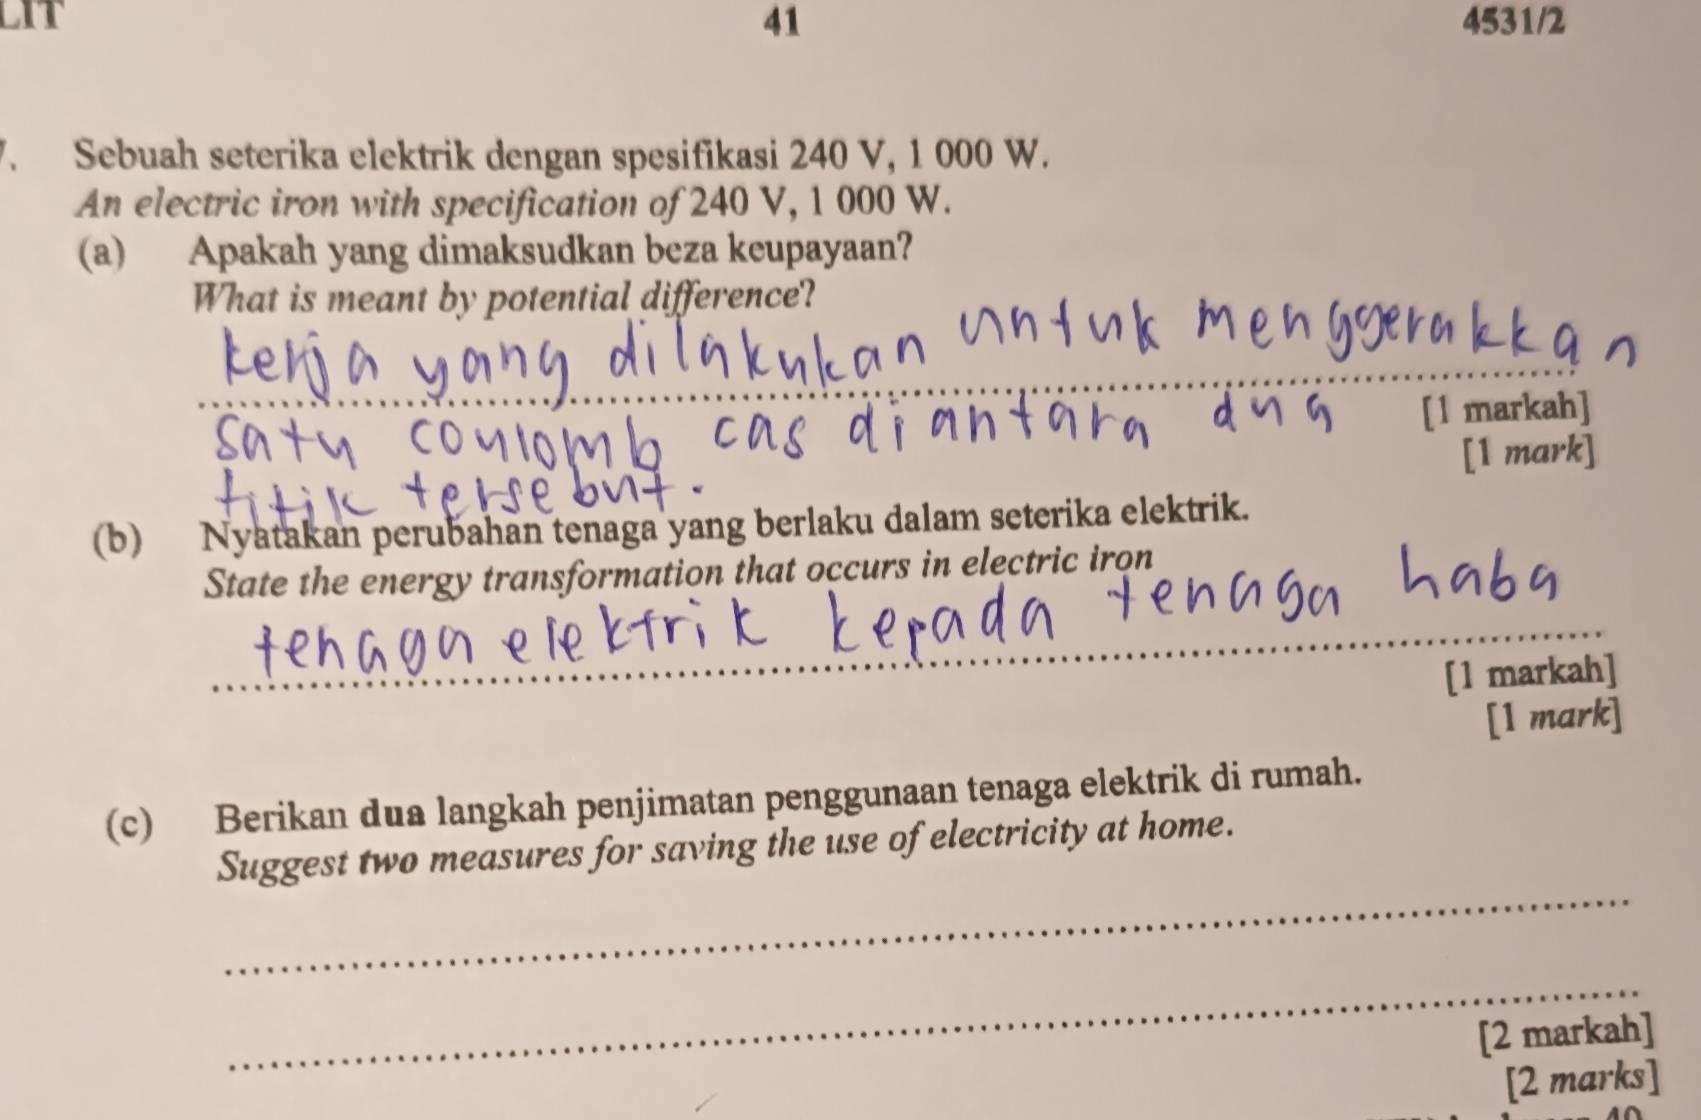 LIT 41 4531/2
7. Sebuah seterika elektrik dengan spesifikasi 240 V, 1 000 W.
An electric iron with specification of 240 V, 1 000 W.
(a) Apakah yang dimaksudkan beza keupayaan?
What is meant by potential difference?
kerja yang dilakukan untuk menggerakkan
satu coulomb cas diantara dua [1 markah]
[1 mark]
titik tersebut.
(b) Nyatakan perubahan tenaga yang berlaku dalam seterika elektrik.
State the energy transformation that occurs in electric iron
tenaga elektrik kepada tenaga haba
[1 markah]
[1 mark]
(c) Berikan dua langkah penjimatan penggunaan tenaga elektrik di rumah.
Suggest two measures for saving the use of electricity at home.
[2 markah]
[2 marks]